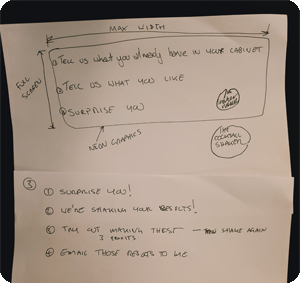 MAX WIDTH
FULL SCREEN
① Tell us what you already have in your cabinet
② Tell us what you like
③ Surprise you
NEON GRAPHICS
THE COCKTAIL SHAKER
③ ① SURPRISE YOU!
② WE'RE SHAKING YOUR RESULTS!
③ TRY OUT MAKING THESE — THEN SHAKE AGAIN
3 
④ EMAIL THOSE RESULTS TO ME